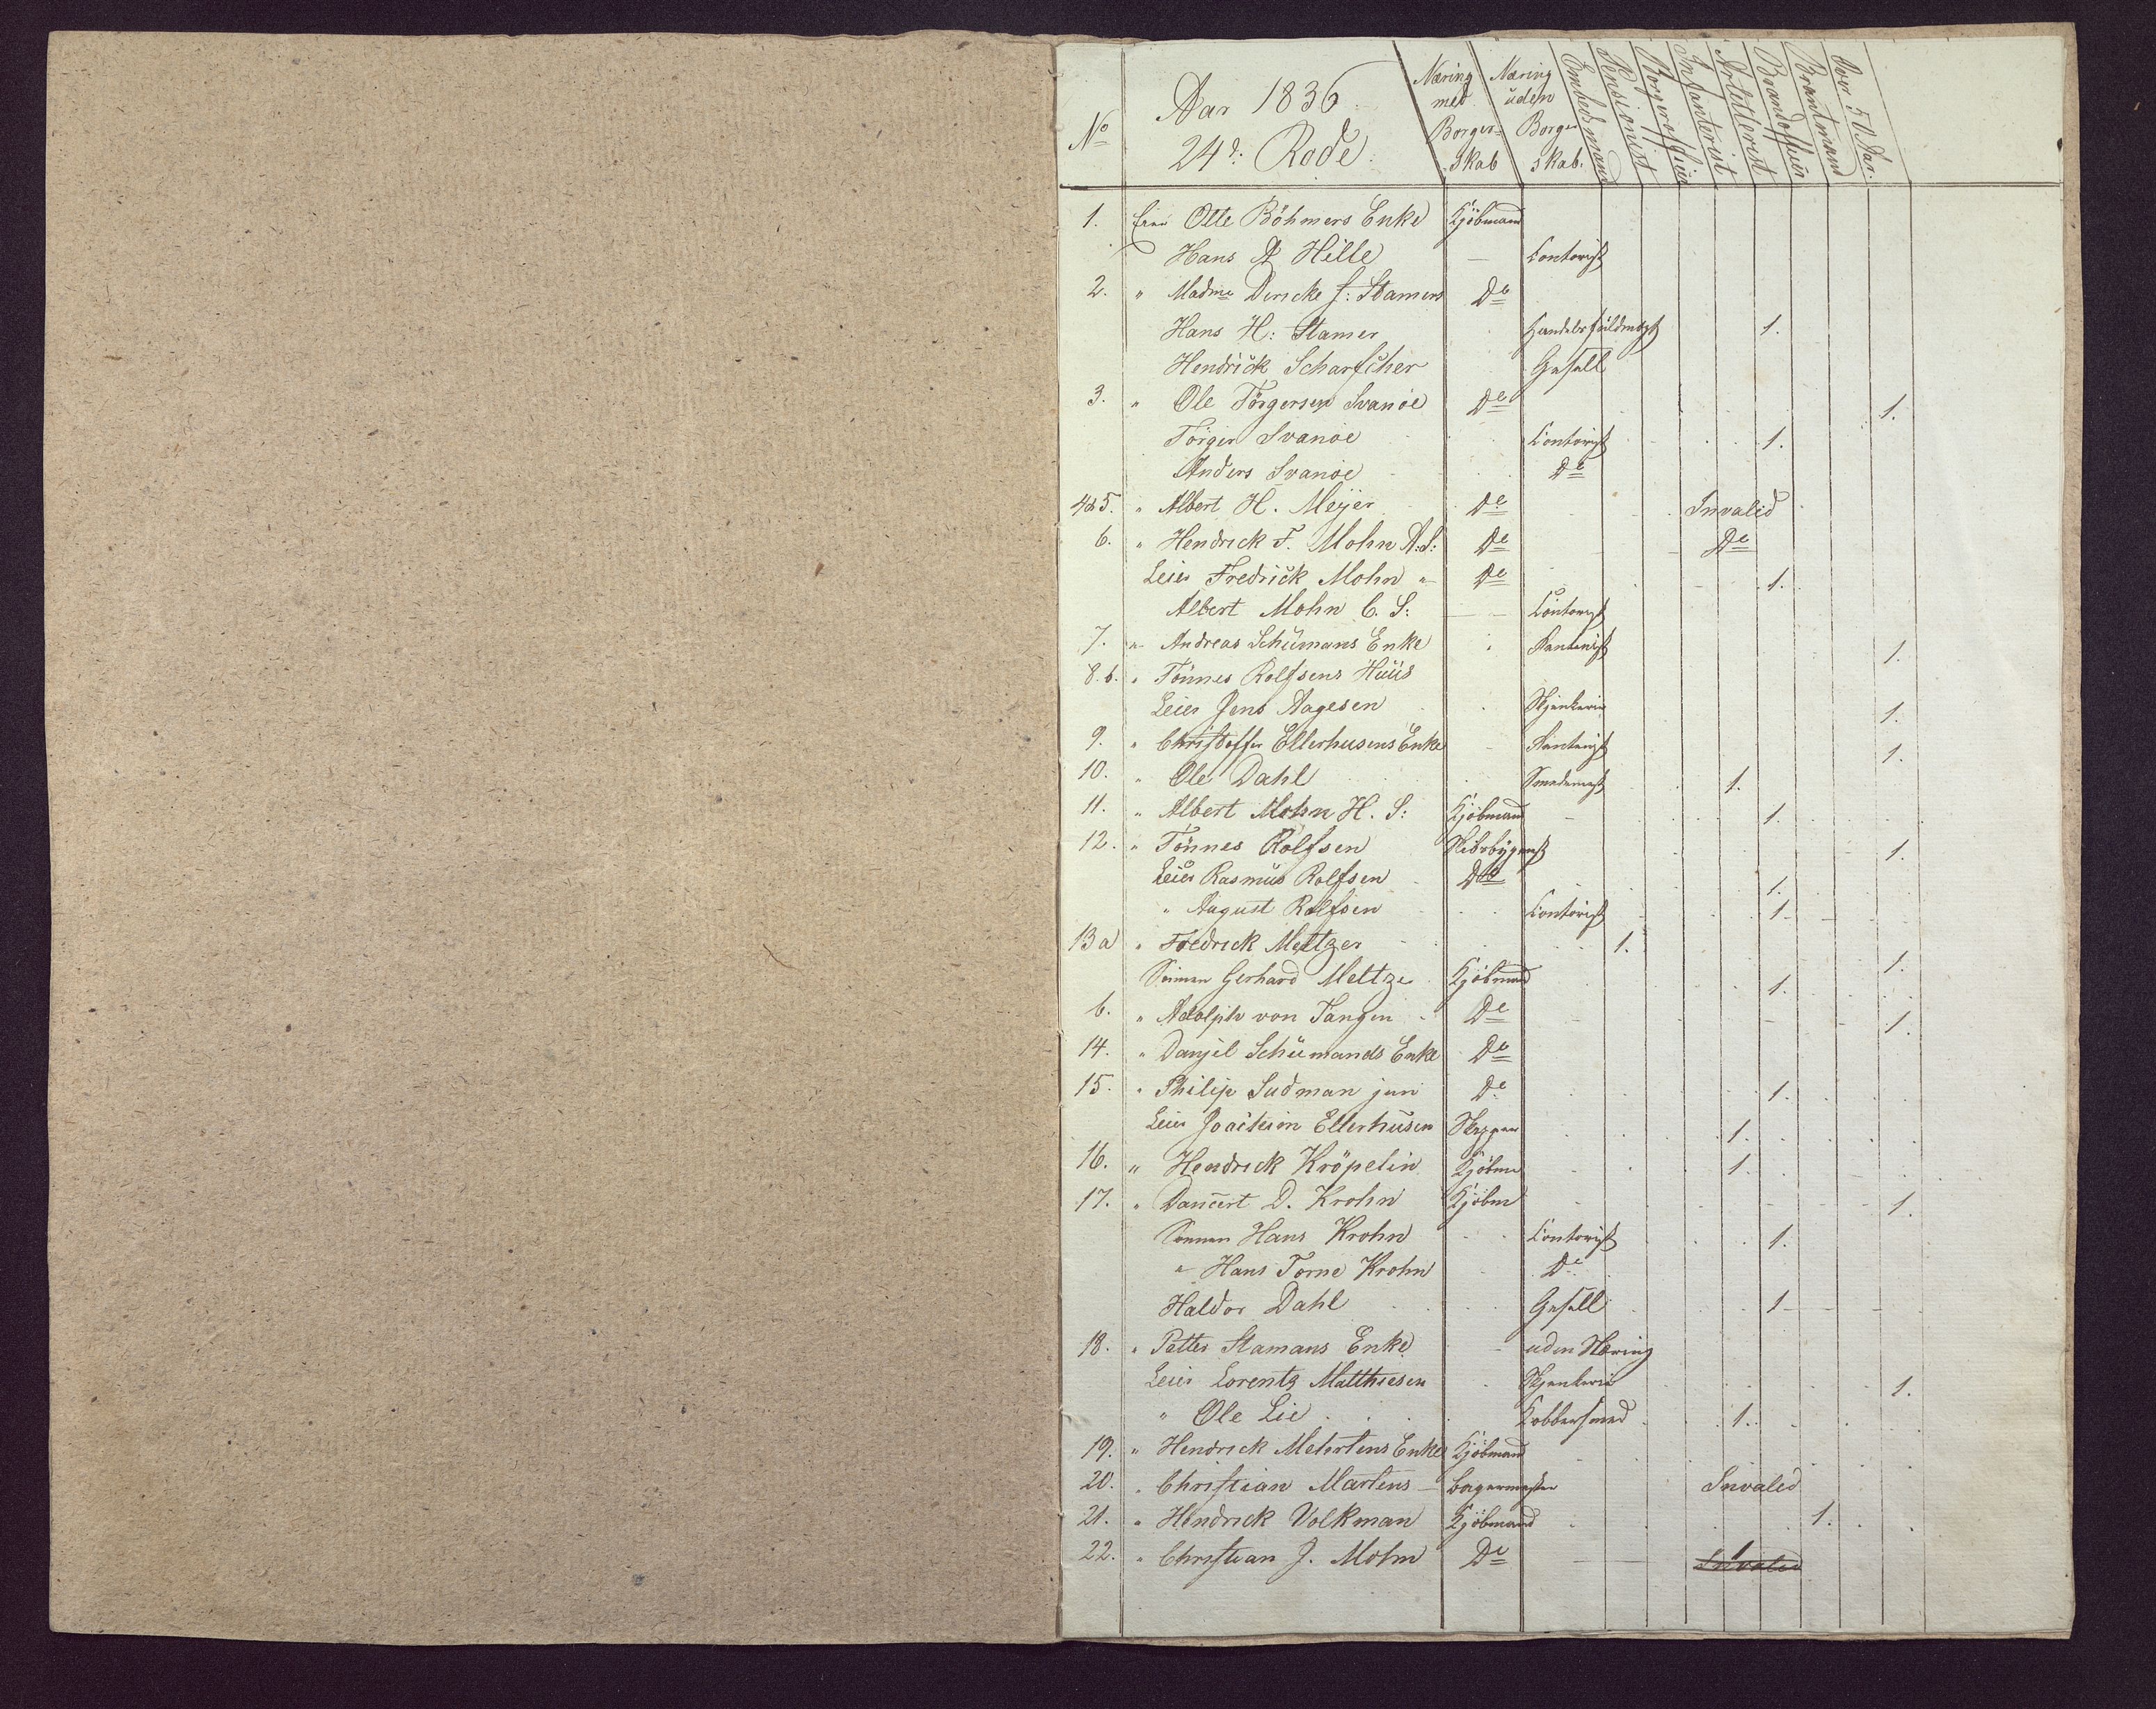 No
Aar 1836
24d: Rode
Næring med Borgerskab
Næring uden Borgerskab.
Embedsmand
Pensionist
Borgerofficier
Infanterist
Artellerist
Brandofficier
Brantmand
Over 50 Aar.
1. Eier Otte Böhmers Enke Kjöbmand
Hans A Hille — Contorist
2. " Madme Dericke J: Stamers De
Hans H: Stamer Handelsfuldmægt 1.
Hendrick Scharfcher Gesell
3. " Ole Törgersen Svanöe De 1.
Törger Svanöe Contorist 1.
Anders Svanöe De
4 & 5. " Albert H. Meyer De Invalid
6. " Hendrick F. Mohn A.S: De De
Leier Fredrick Mohn " De 1.
Albert Mohn C. S: — Contorist
7. " Andreas Schümans Enke 1.
8. b. " Tönnes Rolfsens Huus
Leier Jens Aagesen Skjenkerie 1.
9. " Christoffer Ellerhusens Enke 1.
10. " Ole Dahl Smedemest 1.
11. " Albert Mohn H. S: Kjöbmand 1.
12. " Tönnes Rolfsen Skibsbygmest 1.
Leier Rasmus Rolfsen De 1.
" August Rolfsen Contorist 1.
13 a " Fredrick Meltzer 1. 1.
Sönnen Gerhard Meltzer Kjöbmand 1.
b. " Adolph von Tangen De 1.
14. " Danjel Schümands Enke De
15. " Philip Sudman jun De 1.
Leier Joachim Ellerhusen Skipper 1.
16. " Hendrick Kröpelin Kjöbm 1.
17. " Danckert D. Krohn Kjöbm 1.
Sönnen Hans Krohn Contorist 1.
" Hans Torne Krohn De
Haldor Dahl Gesell 1.
18. " Petter Stamans Enke uden Næring
Leier Lorentz Matthiesen Skjenkerie 1.
" Ole Lie Kobbersmed 1.
19. " Hendrick Mehrtens Enke Kjöbmand
20. " Christian Martens Bagermester Invalid
21. " Hendrick Volkman Kjöbmand 1.
22. " Christian J. Mohn De 1 Invalid